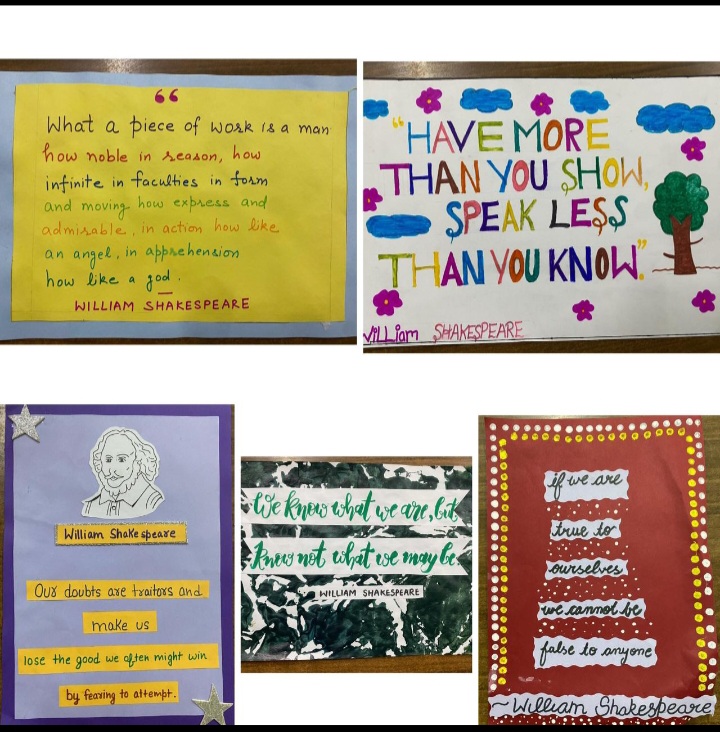 “
What a piece of work is a man
how noble in reason, how
infinite in faculties in form
and moving how express and
admirable, in action how like
an angel, in apprehension
how like a god.
WILLIAM SHAKESPEARE
“HAVE MORE
THAN YOU SHOW,
SPEAK LESS
THAN YOU KNOW.”
William SHAKESPEARE
William Shakespeare
Our doubts are traitors and
make us
lose the good we often might win
by fearing to attempt.
We know what we are, but
Know not what we may be.
WILLIAM SHAKESPEARE
if we are
true to
ourselves
we cannot be
false to anyone
~William Shakespeare